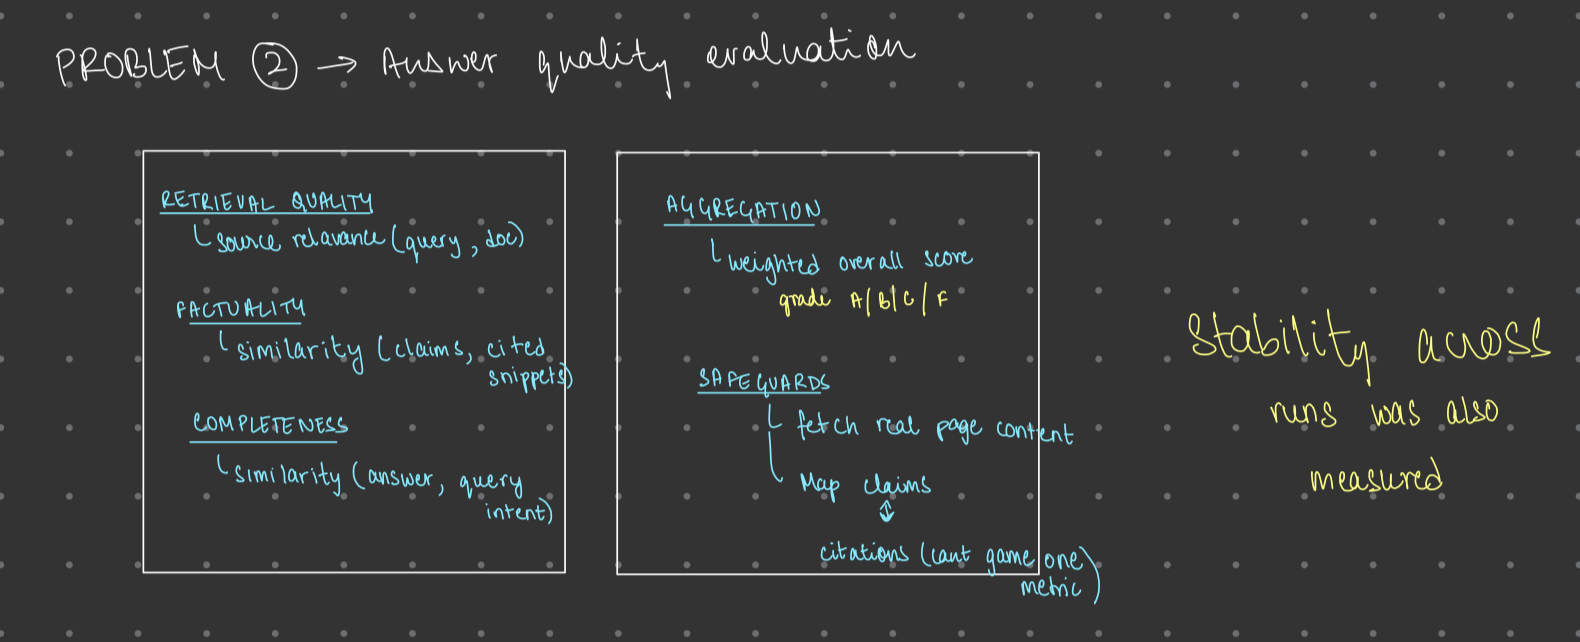 PROBLEM ② → Answer quality evaluation
RETRIEVAL QUALITY
source relavance (query, doc)
FACTUALITY
similarity (claims, cited
snippets)
COMPLETENESS
similarity (answer, query
intent)
AGGREGATION
weighted overall score
grade A/B/C/F
SAFEGUARDS
fetch real page content
Map claims
↕
citations (cant game one
metric)
Stability across
runs was also
measured